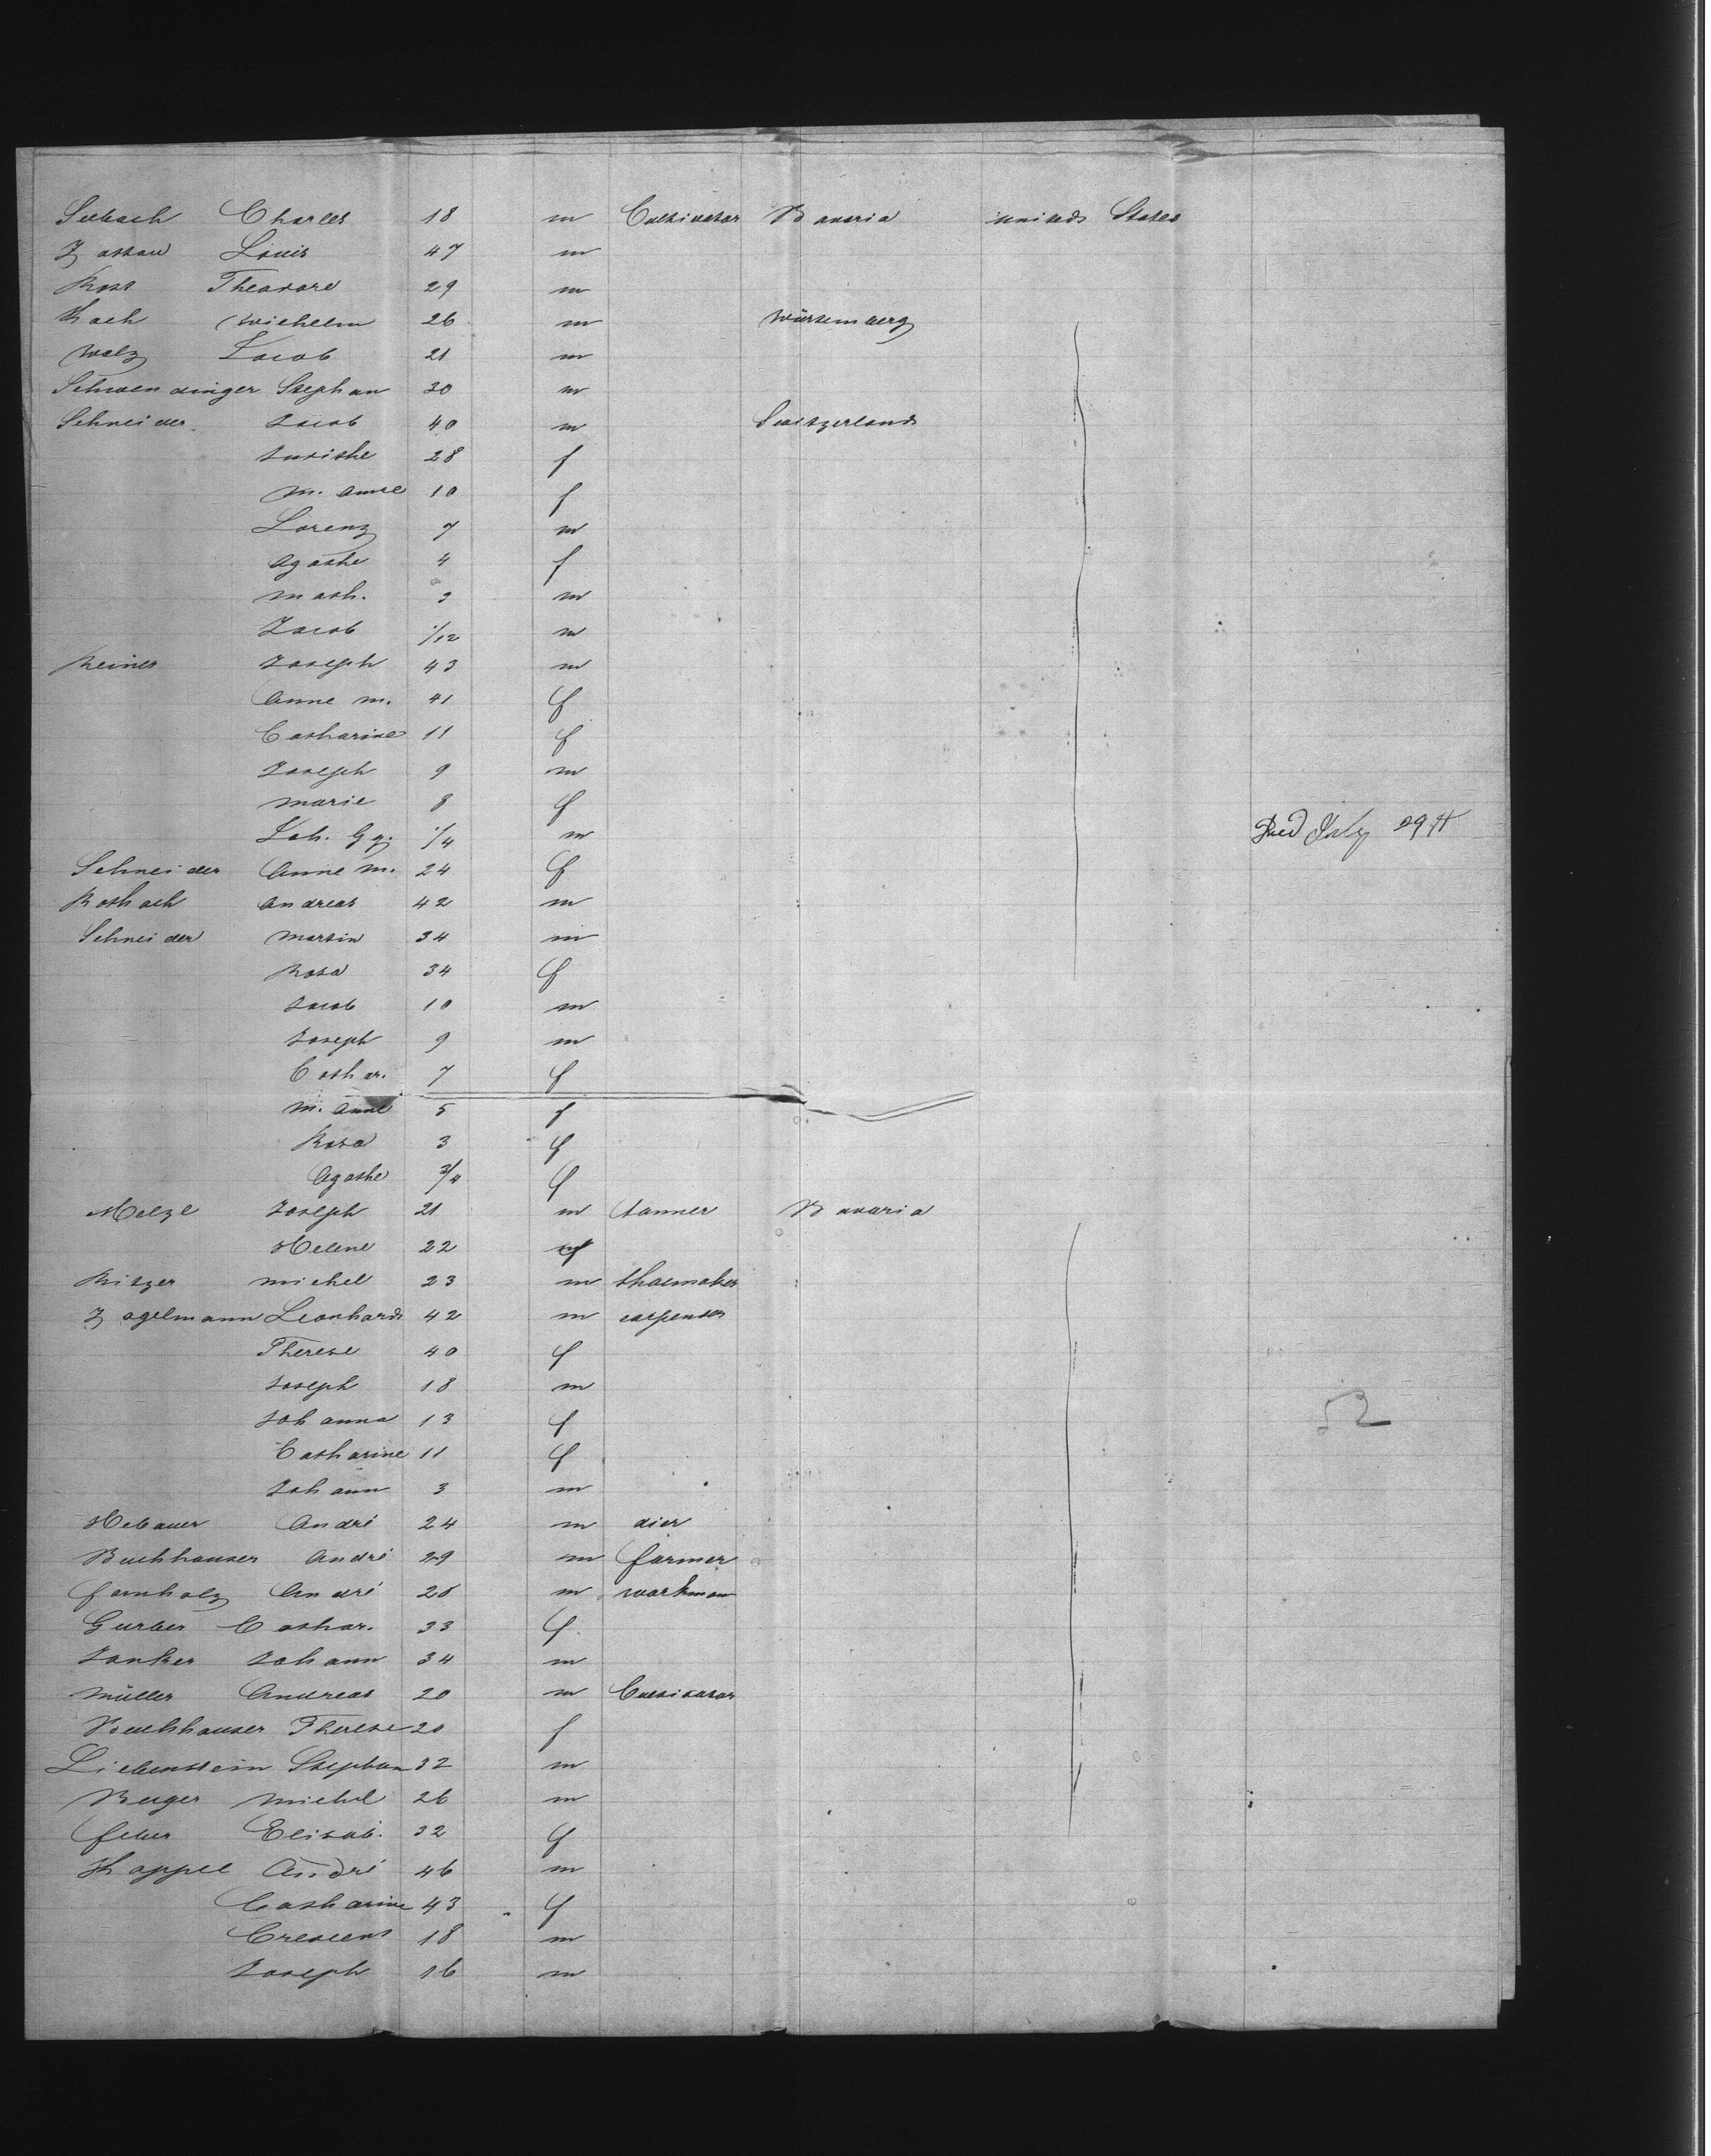 Seebach Charles 18 m Cultivator Bavaria united States
Louis 47 m
Rost Theodore 29 m
Koch Wilhelm 26 m Würtemberg
Walz Jacob 21 m
Schwendinger Stephan 30 m
Schneider Jacob 40 m Switzerland
28 f
M. Anne 10 f
Lorenz 7 m
Agathe 4 f
Math. 3 m
Jacob 1/12 m
Reiner Joseph 43 m
Anne M. 41 f
Catharine 11 f
Joseph 9 m
Marie 8 f
Joh. Gg. 1/4 m Died July 29th
Schneider Anne M. 24 f
Rothach Andreas 42 m
Schneider Martin 34 m
Rosa 34 f
Jacob 10 m
Joseph 9 m
Cathar. 7 f
M. Anne 5 f
Rosa 3 f
Agathe 3/4 f
Melzl Joseph 21 m tanner Bavaria
Helene 22 f
Ritzer Michel 23 m shoemaker
Zagelmann Leonhard 42 m carpenter
Therese 40 f
Joseph 18 m
Johanna 13 f
52
Catharine 11 f
Johann 3 m
Hebauer André 24 m dier
Buchhauser André 29 m farmer
Fernholz André 28 m workman
Gerber Cathar. 33 f
Janker Johann 34 m
Müller Andreas 20 m Cultivator
Buchhauser Therese 20 f
Liebenstein Stephan 32 m
Berger Michel 26 m
Elisab. 32 f
Kappel André 46 m
Catharine 43 f
Crescent 18 m
Joseph 16 m